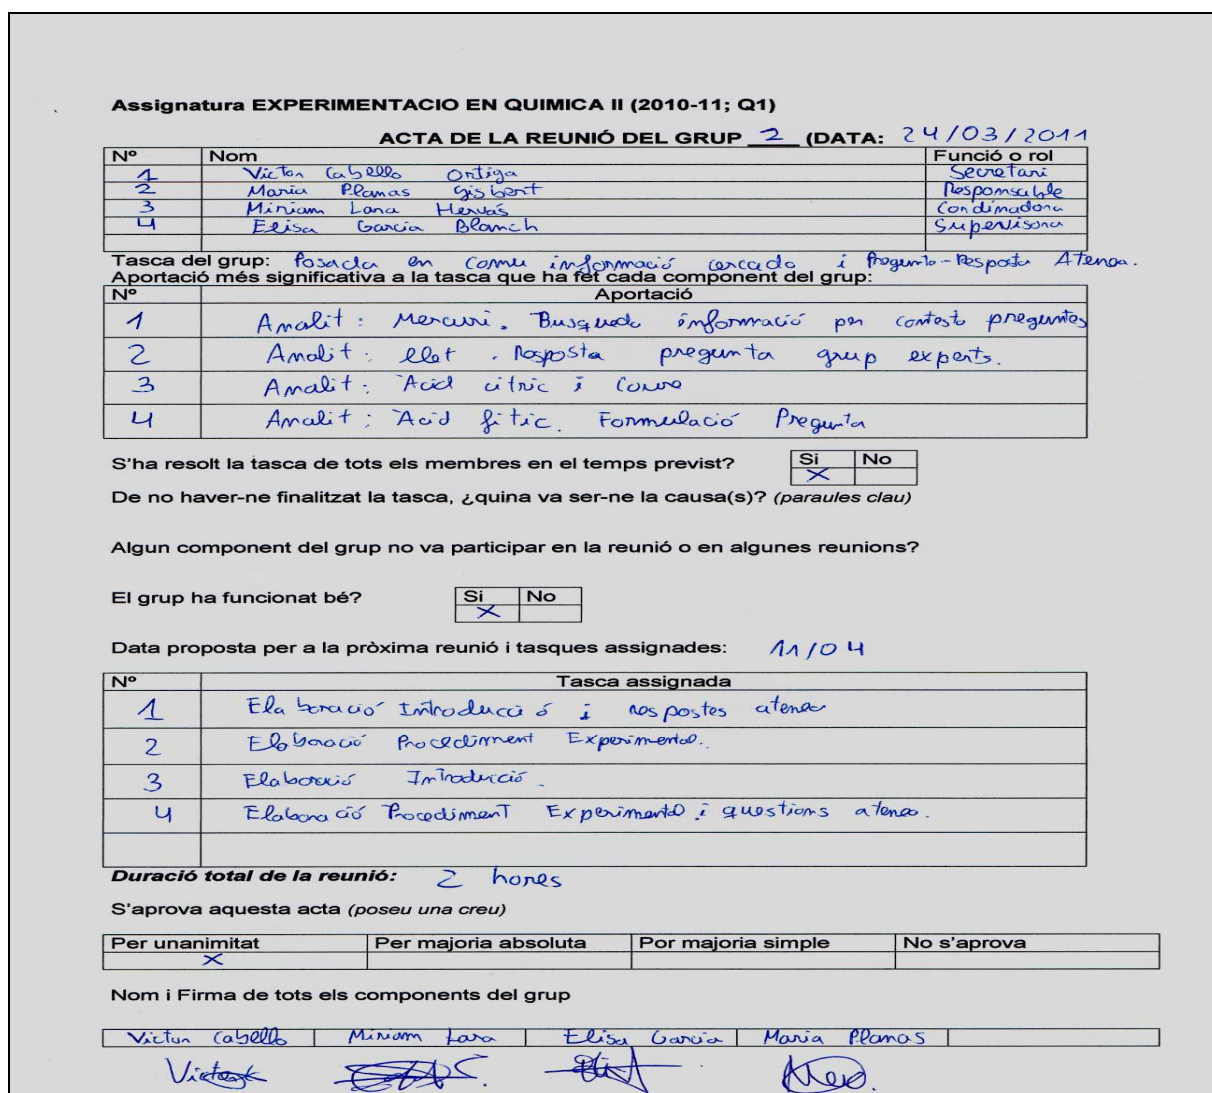 Assignatura EXPERIMENTACIO EN QUIMICA II (2010-11; Q1)
ACTA DE LA REUNIÓ DEL GRUP 2 (DATA: 24/03/2011
Nº Nom Funció o rol
1 Victor Cabello Ortiga Secretari
2 Maria Planas Gisbert Responsable
3 Miriam Lara Hervás Coordinadora
4 Elisa Garcia Blanch Supervisora
Tasca del grup: Posada en comu informació cercada i Pregunta-Resposta Atenea.
Aportació més significativa a la tasca que ha fet cada component del grup:
Nº Aportació
1 Analit: Mercuri. Busqueda informació per contestà preguntes
2 Analit: llet. Resposta pregunta grup experts.
3 Analit: Àcid cítric i Coure
4 Analit: Àcid fític. Formulació Pregunta
S'ha resolt la tasca de tots els membres en el temps previst? Si No
X
De no haver-ne finalitzat la tasca, ¿quina va ser-ne la causa(s)? (paraules clau)
Algun component del grup no va participar en la reunió o en algunes reunions?
El grup ha funcionat bé? Si No
X
Data proposta per a la pròxima reunió i tasques assignades: 11/04
Nº Tasca assignada
1 Elaboració Introducció i respostes atenea
2 Elaboració Procediment Experimental.
3 Elaboració Introducció.
4 Elaboració Procediment Experimental i questions atenea.
Duració total de la reunió: 2 hores
S'aprova aquesta acta (poseu una creu)
Per unanimitat Per majoria absoluta Por majoria simple No s'aprova
X
Nom i Firma de tots els components del grup
Victor Cabello Miriam Lara Elisa Garcia Maria Planas